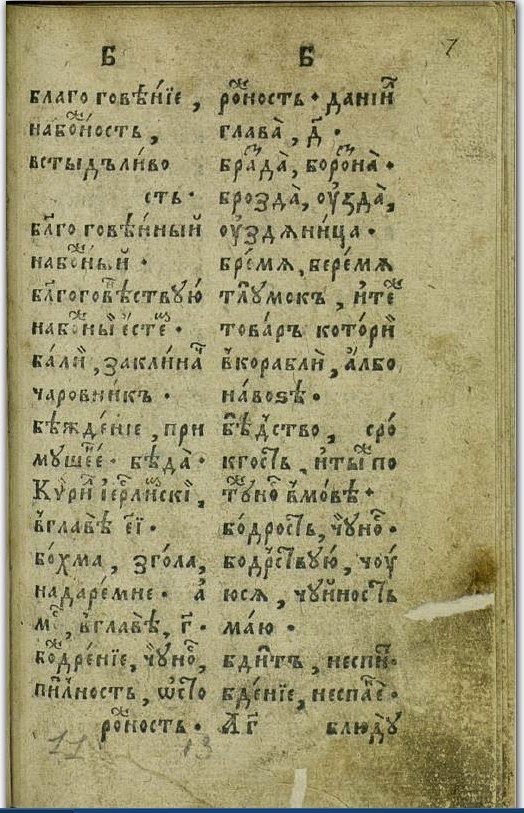 Б
благо говѣ́нїе ,
набо́жность ,
встыдъли́во
сть .
бл҃го говѣ́нный
набо́жный .
бл҃гоговѣ́ствую
набо́жный есте́мъ .
ба́лїй , заклина́чъ
чаровни́къ .
бѣжде́нїе , при
муше́нье . бѣда̀ .
в̾главѣ̀
бо́хма , згола ,
надаре́мне . а҆́
мⷭ҇ , в̾главѣ̀ , г҃ .
бо́дре́нїе , чу́йноⷭ҇ ,
пи́лность , ѡ҆сто
ро́жность .
Б
ро́жность . данїи́л
глава̀ , д҃ .
брада̀ , борода̀ .
брозда̀ , оу҆зда̀ ,
оу҆здѧни́ца .
бре́мѧ , бере́мѧ
тлу́мокъ , и҆ те́ж
това́ръ кото́рій
в̾кораблѝ , а҆́лбо
на́возѣ .
бѣ́дство , сро́
кгость , и҆ ты́ж по
в̾мо́вѣ .
бо́дрость , чу́йноⷭ҇ .
бо́дрствую , чоу́
юсѧ , чу́йность
ма́ю .
бди́тъ , неспи́т .
бде́нїе , неспа́нье .
А҃г блюду
7
13